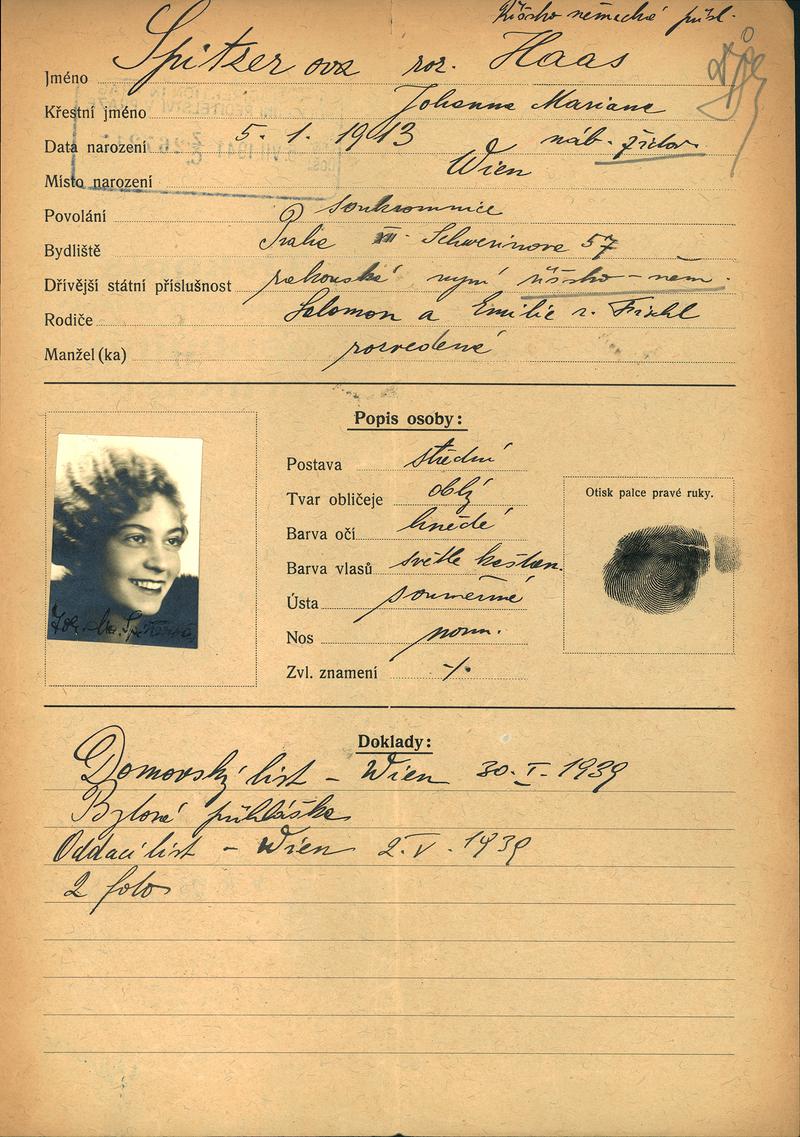 Říšsko německé přísl.
Jméno Spitzerova roz. Haas
Křestní jméno Johanna Mariana
Data narození 5. 1. 1913 náb. židov.
Místo narození Wien
Povolání soukromnice
Bydliště Praha XII Schwerinova 57
Dřívější státní příslušnost rakouská nyní říšsko-něm.
Rodiče Salomon a Emilie r. Fischl
Manžel (ka) rozvedená
Popis osoby:
Postava střední
Tvar obličeje oblý
Barva očí hnědé
Barva vlasů světle kaštan.
Ústa souměrné
Nos norm.
Zvl. znamení -/.
Otisk palce pravé ruky.
Doklady:
Domovský list - Wien 30. I. 1939
Bytová přihláška
Oddací list - Wien 2. V. 1939
2 foto